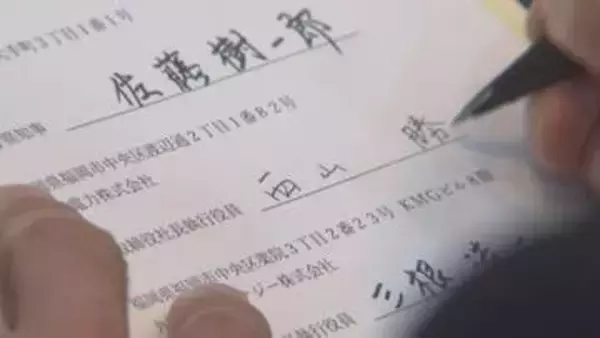 3丁目1番1号
知事 佐藤樹一郎
県福岡市中央区渡辺通2丁目1番82号
電力株式会社
締役社長執行役員 西山 勝
福岡県福岡市中央区薬院3丁目2番23号 KMGビル8階
ジー株式会社
執行役員 三根